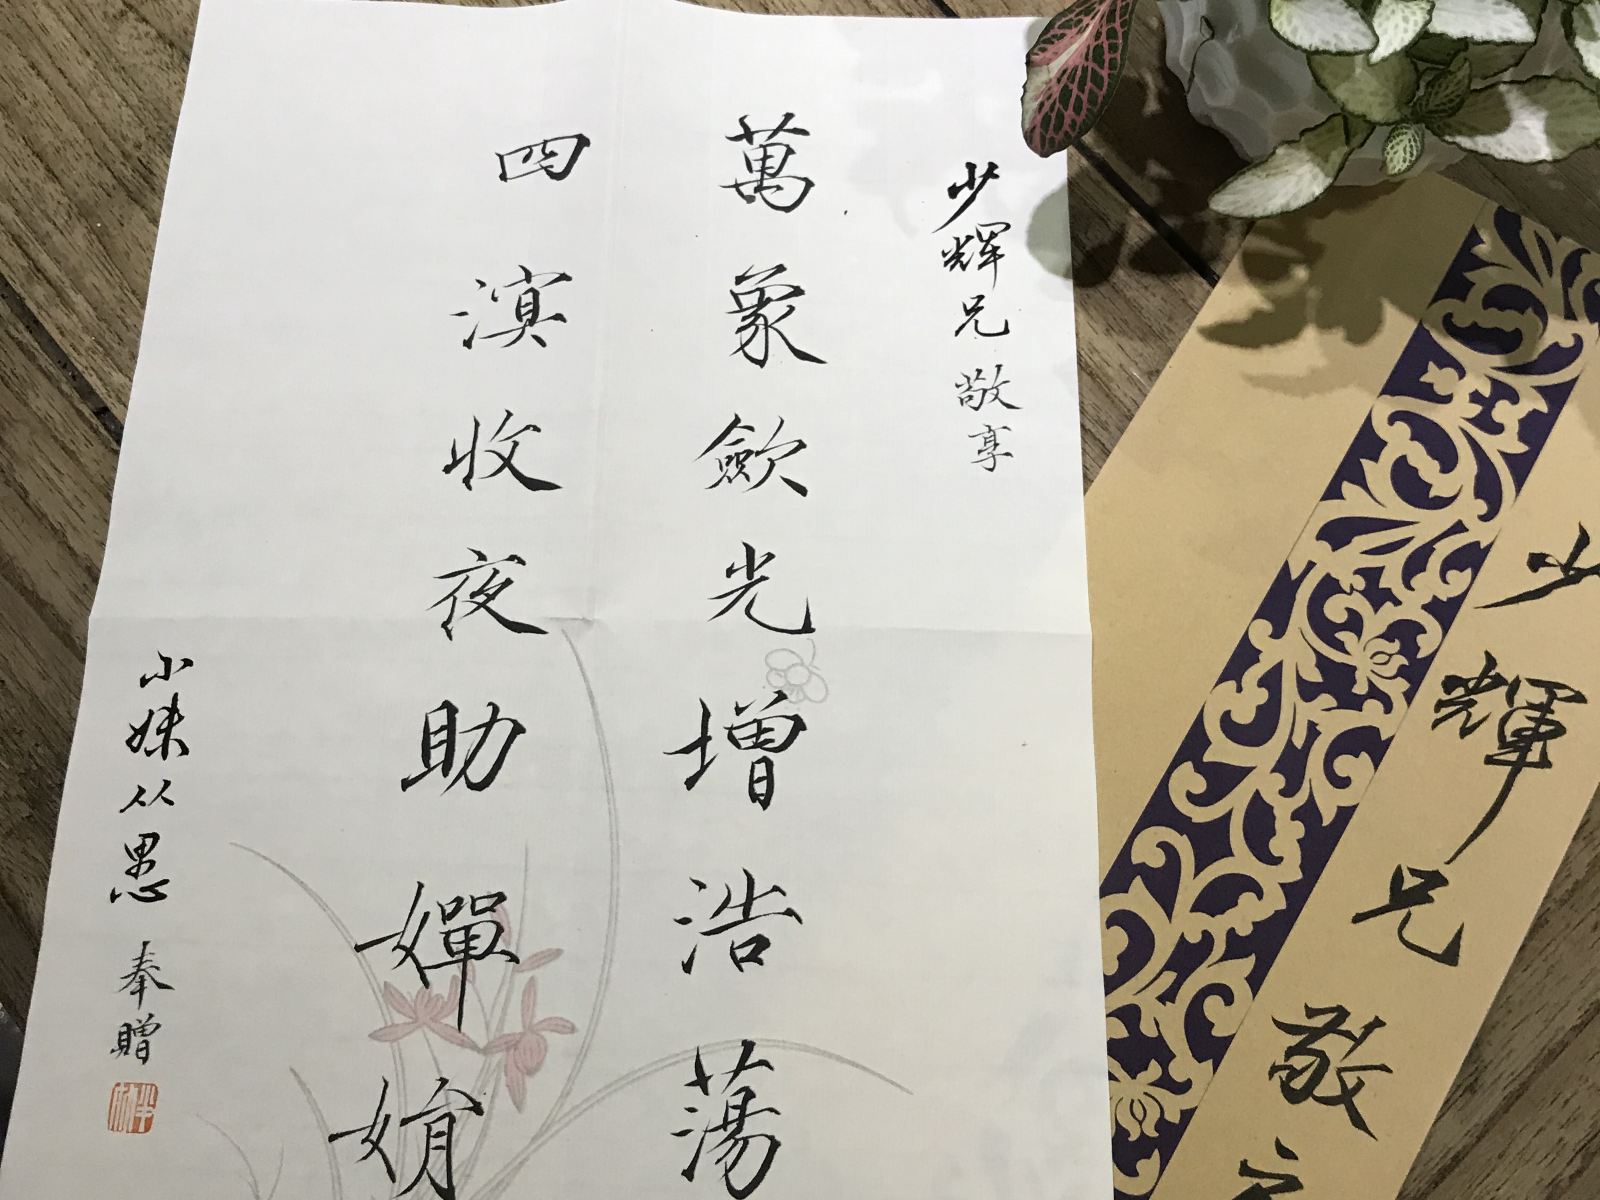 少輝兄敬享
萬象歛光增浩蕩
四溟收夜助嬋娟
小妹从愚奉贈
少輝兄敬